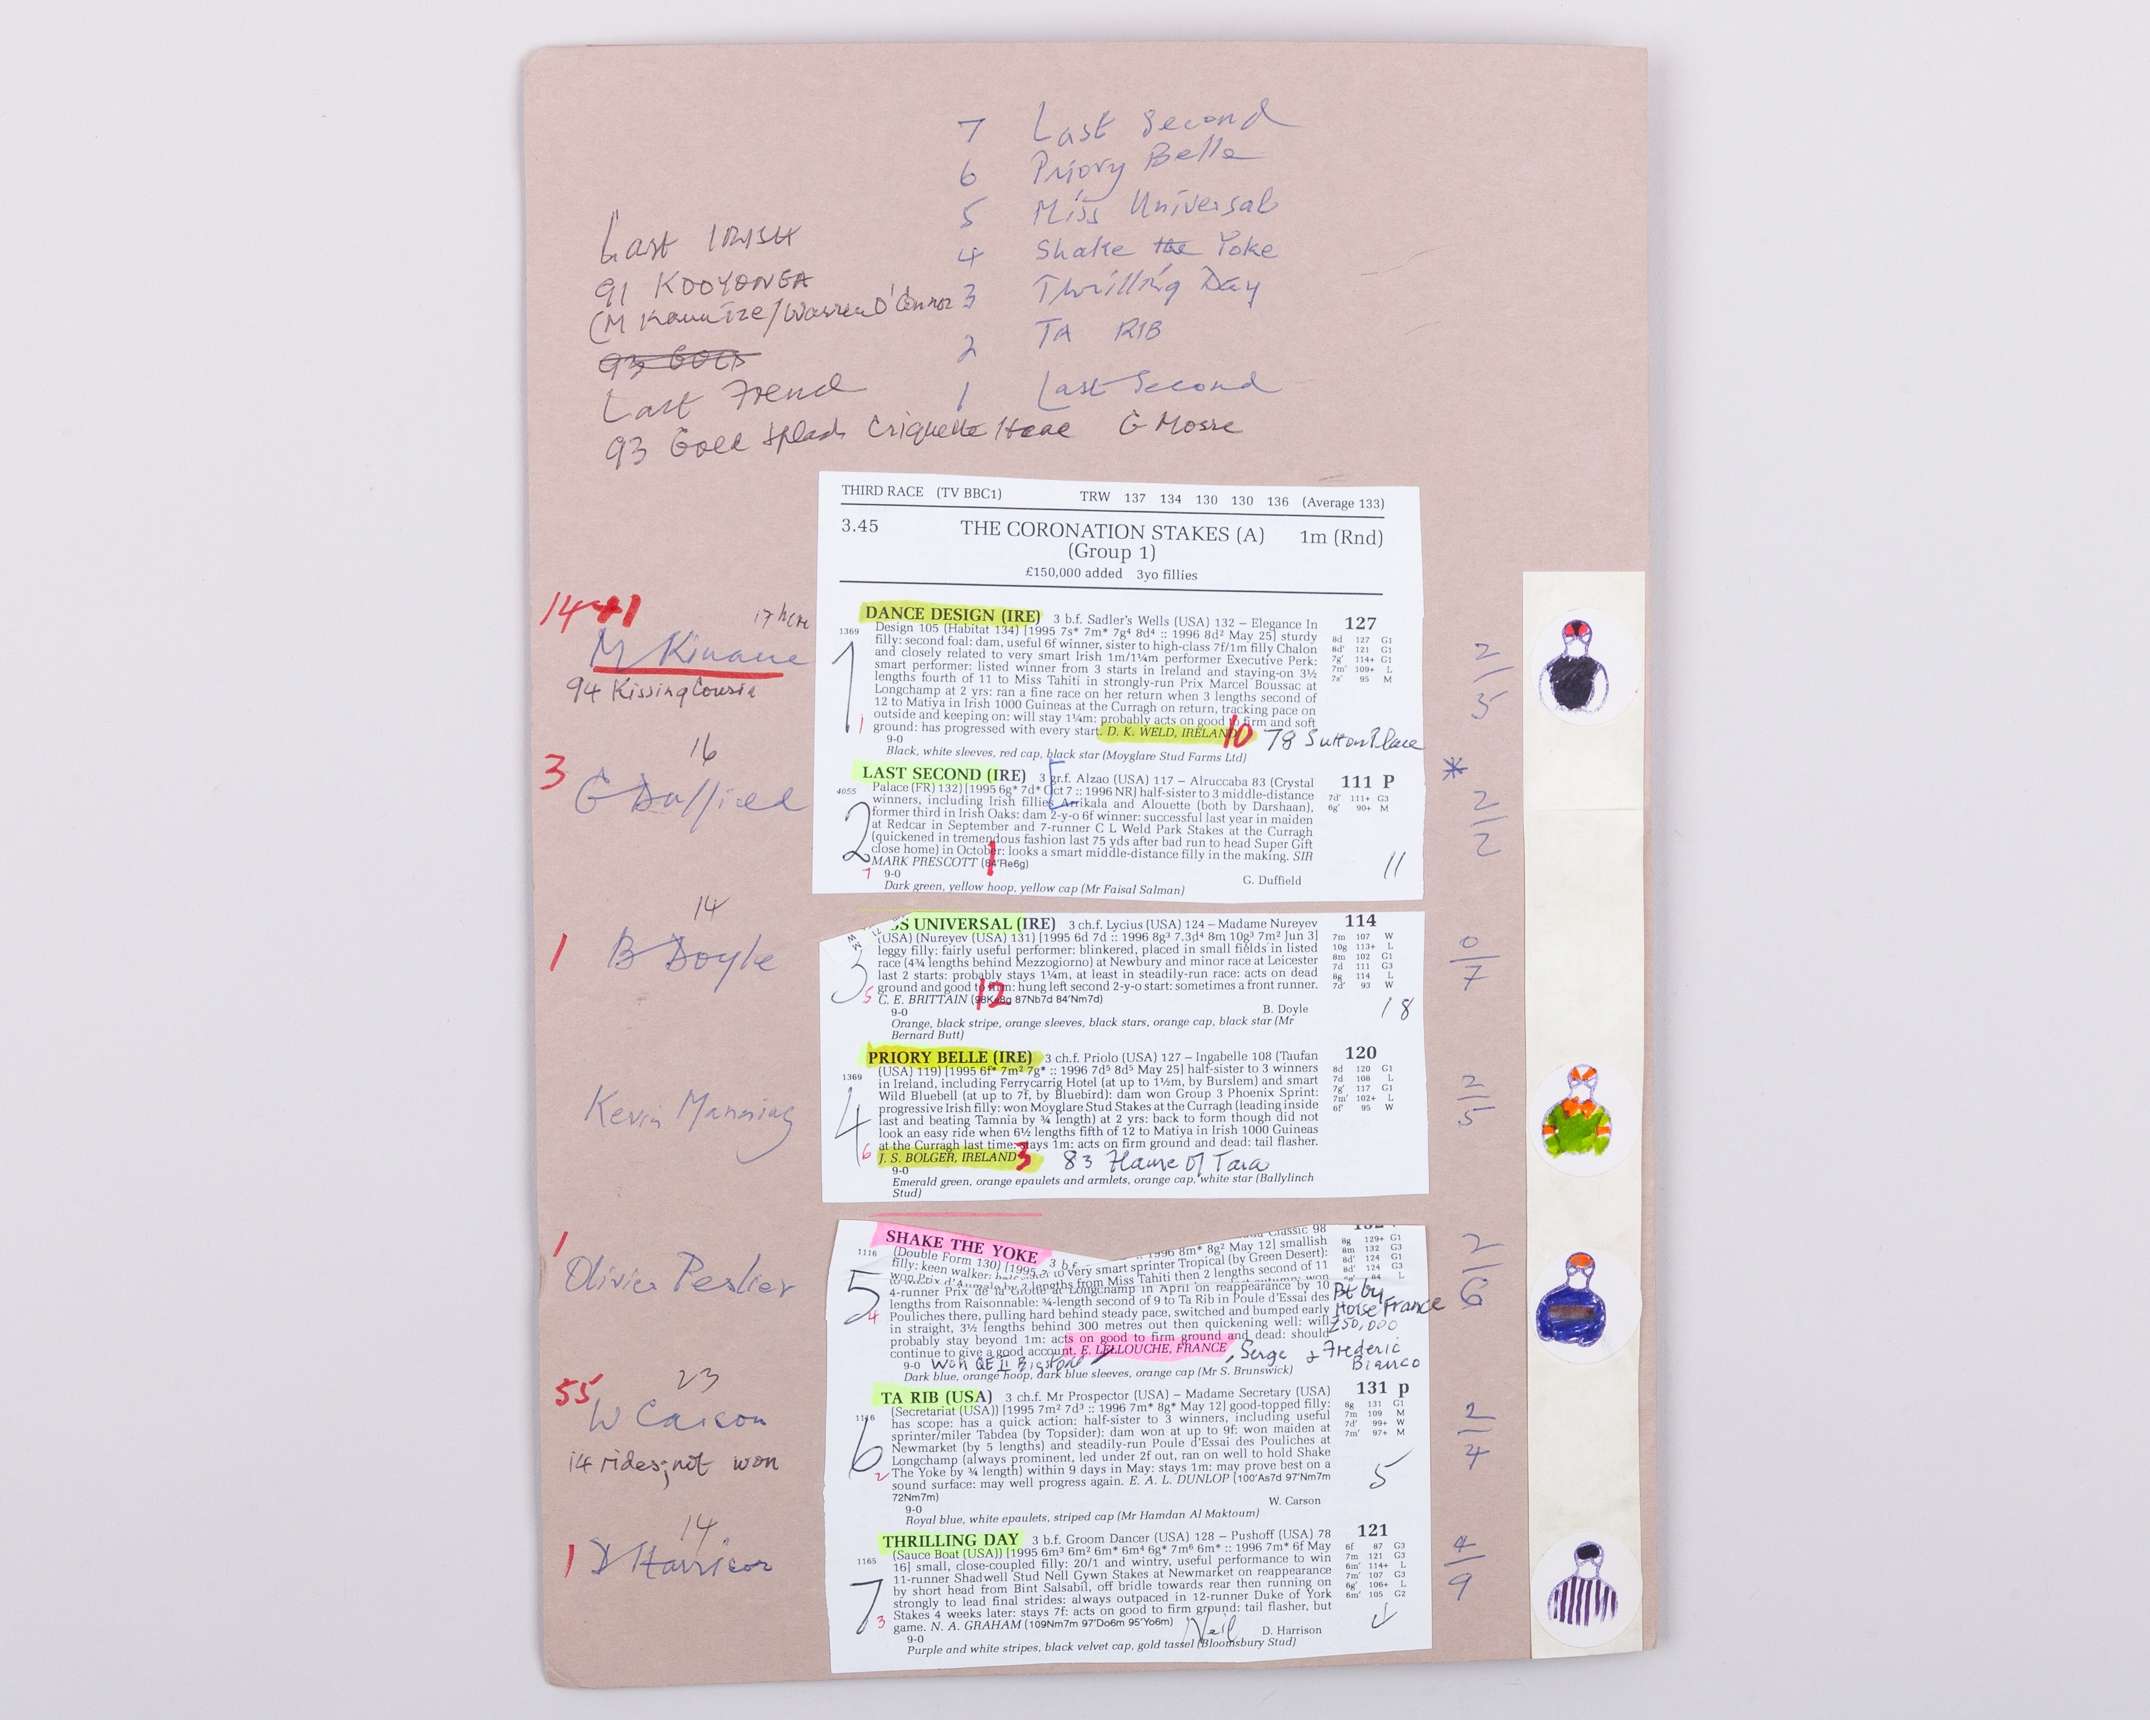 7 Last Second
6 Priory Belle
5 Miss Universal
4 Shake the Yoke
3 Thrilling Day
2 TA RIB
1 Last Second
Last IRISH
91 KOOYONGA
(M Kauntze/Warren O'Connor
93 GOLD
Last French
93 Gold Splash Criquette Head G Mosse
THIRD RACE (TV BBC1) TRW 137 134 130 130 136 (Average 133)
3.45 THE CORONATION STAKES (A) 1m (Rnd)
(Group 1)
£150,000 added 3yo fillies
14+1
M Kinane
94 Kissing Cousin
DANCE DESIGN (IRE) 3 b.f. Sadler's Wells (USA) 132 – Elegance In 127
1369
1
Design 105 (Habitat 134) [1995 7s* 7m* 7g⁴ 8d⁴ :: 1996 8d² May 25] sturdy
filly: second foal: dam, useful 6f winner, sister to high-class 7f/1m filly Chalon
and closely related to very smart Irish 1m/1¼m performer Executive Perk:
smart performer: listed winner from 3 starts in Ireland and staying-on 3½
lengths fourth of 11 to Miss Tahiti in strongly-run Prix Marcel Boussac at
Longchamp at 2 yrs: ran a fine race on her return when 3 lengths second of
12 to Matiya in Irish 1000 Guineas at the Curragh on return, tracking pace on
outside and keeping on: will stay 1¼m: probably acts on good to firm and soft
ground: has progressed with every start. D. K. WELD, IRELAND 10 78 Sutton Place
9-0
Black, white sleeves, red cap, black star (Moyglare Stud Farms Ltd)
8d 127 G1
8d' 121 G1
7g' 114+ G1
7m' 109+ L
7s' 95 M
2/5
1
3
16
G Duffield
LAST SECOND (IRE) 3 gr.f. Alzao (USA) 117 – Alruccaba 83 (Crystal 111 P
4055
2
Palace (FR) 132) [1995 6g* 7d* Oct 7 :: 1996 NR] half-sister to 3 middle-distance
winners, including Irish fillies Arrikala and Alouette (both by Darshaan),
former third in Irish Oaks: dam 2-y-o 6f winner: successful last year in maiden
at Redcar in September and 7-runner C L Weld Park Stakes at the Curragh
(quickened in tremendous fashion last 75 yds after bad run to head Super Gift
close home) in October: looks a smart middle-distance filly in the making. SIR
MARK PRESCOTT (84'Re6g)
1
9-0 G. Duffield
Dark green, yellow hoop, yellow cap (Mr Faisal Salman)
7d' 111+ G3
6g' 90+ M
11
* 2/2
1
14
B Doyle
SS UNIVERSAL (IRE) 3 ch.f. Lycius (USA) 124 – Madame Nureyev 114
3
(USA) (Nureyev (USA) 131) [1995 6d 7d :: 1996 8g³ 7.3d⁴ 8m 10g³ 7m² Jun 3]
leggy filly: fairly useful performer: blinkered, placed in small fields in listed
race (4¼ lengths behind Mezzogiorno) at Newbury and minor race at Leicester
last 2 starts: probably stays 1¼m, at least in steadily-run race: acts on dead
ground and good to firm: hung left second 2-y-o start: sometimes a front runner.
C. E. BRITTAIN (98Ke8g 87Nb7d 84'Nm7d)
12
5
9-0 B. Doyle
Orange, black stripe, orange sleeves, black stars, orange cap, black star (Mr
Bernard Butt)
7m 107 W
10g 113+ L
8m 102 G1
7d 111 G3
8g 114 L
7d' 93 W
18
0/7
Kevin Manning
PRIORY BELLE (IRE) 3 ch.f. Priolo (USA) 127 – Ingabelle 108 (Taufan 120
1369
4
(USA) 119) [1995 6f* 7m² 7g* :: 1996 7d⁵ 8d⁵ May 25] half-sister to 3 winners
in Ireland, including Ferrycarrig Hotel (at up to 1½m, by Burslem) and smart
Wild Bluebell (at up to 7f, by Bluebird): dam won Group 3 Phoenix Sprint:
progressive Irish filly: won Moyglare Stud Stakes at the Curragh (leading inside
last and beating Tamnia by ¾ length) at 2 yrs: back to form though did not
look an easy ride when 6½ lengths fifth of 12 to Matiya in Irish 1000 Guineas
at the Curragh last time: stays 1m: acts on firm ground and dead: tail flasher.
J. S. BOLGER, IRELAND 3 83 Flame of Tara
6
9-0
Emerald green, orange epaulets and armlets, orange cap, white star (Ballylinch
Stud)
8d 120 G1
7d 108 L
7g' 117 G1
7m' 102+ L
6f' 95 W
2/5
1
Olivier Peslier
SHAKE THE YOKE
1116
5
(Double Form 130) [1995 3 b.f. 1996 8m* 8g² May 12] smallish
filly: keen walker: half-sister to very smart sprinter Tropical (by Green Desert):
won Prix d'Aumale by 2 lengths from Miss Tahiti then 2 lengths second of 11
4-runner Prix de la Grotte at Longchamp in April on reappearance by 10
lengths from Raisonnable: ¾-length second of 9 to Ta Rib in Poule d'Essai des
Pouliches there, pulling hard behind steady pace, switched and bumped early
in straight, 3½ lengths behind 300 metres out then quickening well: will
probably stay beyond 1m: acts on good to firm ground and dead: should
continue to give a good account. E. LELLOUCHE, FRANCE, Serge & Frederic Bianco
Bt by
Horse France
250,000
4
9-0 Won QE II Bigstone
Dark blue, orange hoop, dark blue sleeves, orange cap (Mr S. Brunswick)
8g 129+ G1
8m 132 G3
8d' 124 G1
8d' 124 G3
84 L
2/6
55
23
W Carson
14 rides; not won
TA RIB (USA) 3 ch.f. Mr Prospector (USA) – Madame Secretary (USA) 131 p
1116
6
(Secretariat (USA)) [1995 7m² 7d³ :: 1996 7m* 8g* May 12] good-topped filly:
has scope: has a quick action: half-sister to 3 winners, including useful
sprinter/miler Tabdea (by Topsider): dam won at up to 9f: won maiden at
Newmarket (by 5 lengths) and steadily-run Poule d'Essai des Pouliches at
Longchamp (always prominent, led under 2f out, ran on well to hold Shake
The Yoke by ¾ length) within 9 days in May: stays 1m: may prove best on a
sound surface: may well progress again. E. A. L. DUNLOP (100'As7d 97'Nm7m
72Nm7m)
2
9-0 W. Carson
Royal blue, white epaulets, striped cap (Mr Hamdan Al Maktoum)
8g 131 G1
7m 109 M
7d' 99+ W
7m' 97+ M
5
2/4
1
14
D Harrison
THRILLING DAY 3 b.f. Groom Dancer (USA) 128 – Pushoff (USA) 78 121
1165
7
(Sauce Boat (USA)) [1995 6m³ 6m² 6m* 6m⁴ 6g* 7m⁶ 6m* :: 1996 7m* 6f May
16] small, close-coupled filly: 20/1 and wintry, useful performance to win
11-runner Shadwell Stud Nell Gwyn Stakes at Newmarket on reappearance
by short head from Bint Salsabil, off bridle towards rear then running on
strongly to lead final strides: always outpaced in 12-runner Duke of York
Stakes 4 weeks later: stays 7f: acts on good to firm ground: tail flasher, but
game. N. A. GRAHAM (109Nm7m 97'Do6m 95'Yo6m) Neil
3
9-0 D. Harrison
Purple and white stripes, black velvet cap, gold tassel (Bloomsbury Stud)
6f 87 G3
7m 121 G3
6m' 114+ L
7m' 107 G3
6g' 106+ L
6m' 105 G2
4/9